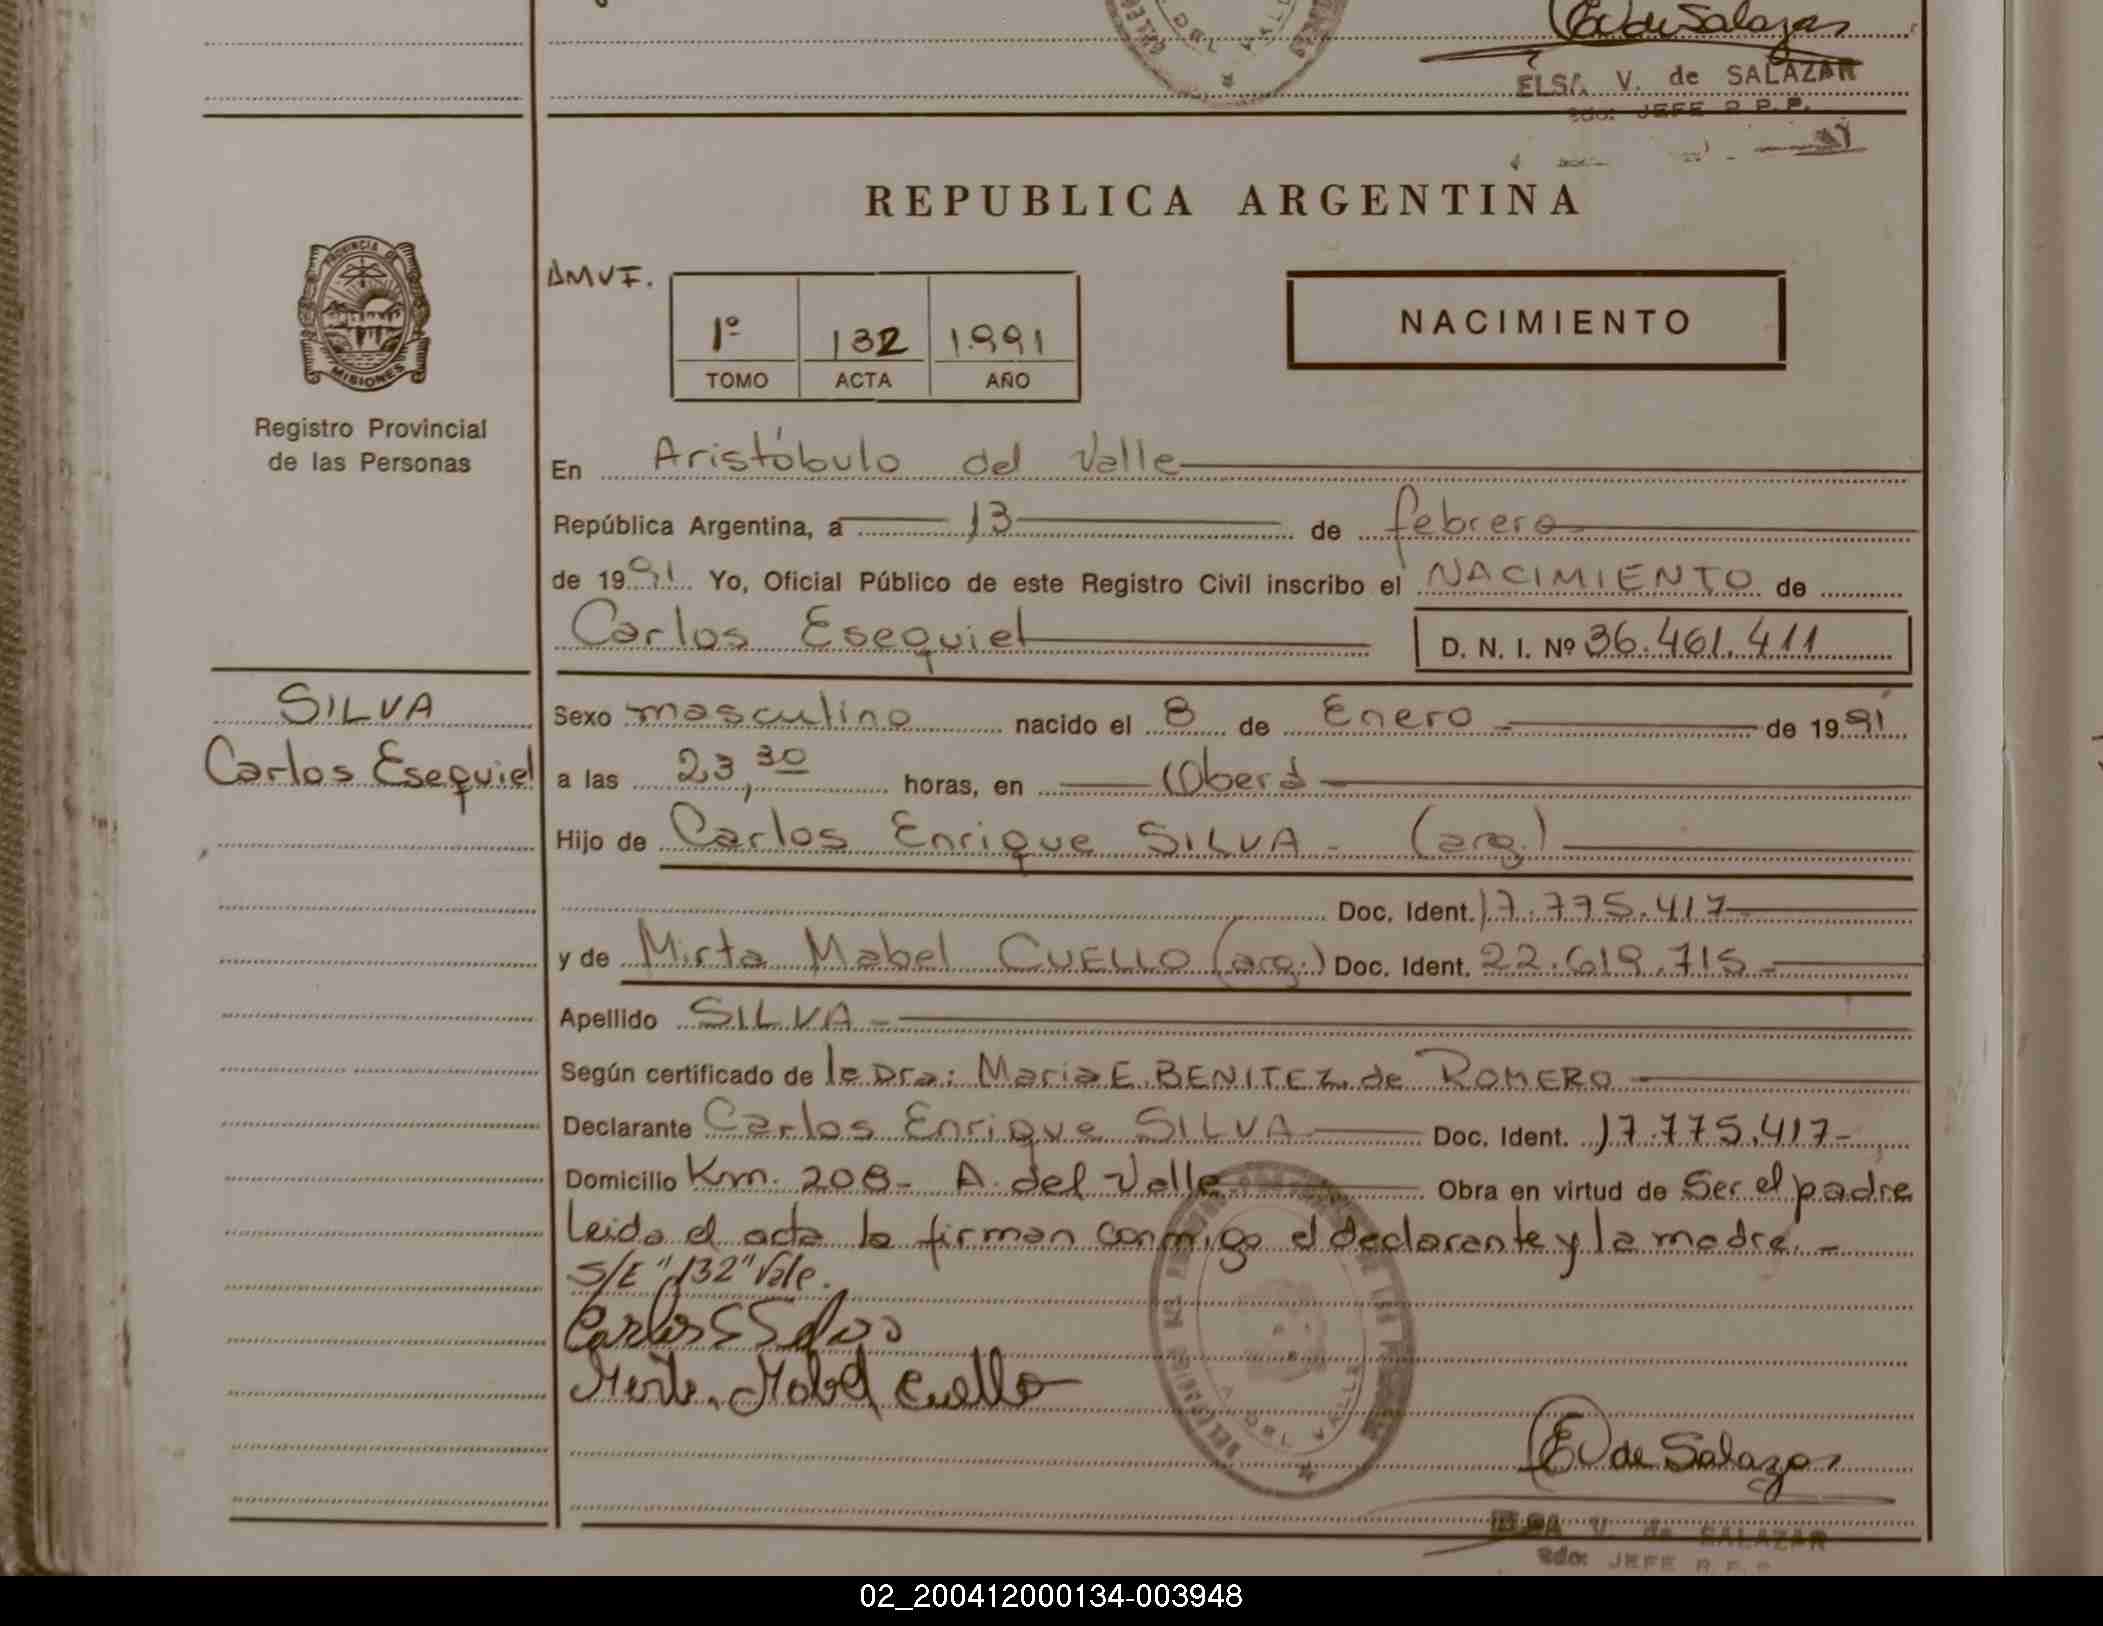 E V de Salazar
ELSA V. de SALAZAR
2do. JEFE R.P.P.
REPUBLICA ARGENTINA
PROVINCIA DE
MISIONES
Registro Provincial
de las Personas
AMVF.
1º 132 1991
TOMO ACTA AÑO
NACIMIENTO
En Aristóbulo del Valle
República Argentina, a 13 de febrero
de 1991 Yo, Oficial Público de este Registro Civil inscribo el NACIMIENTO de
Carlos Esequiel D. N. I. Nº 36.461.411
SILVA
Carlos Esequiel
Sexo masculino nacido el 8 de Enero de 1991
a las 23,30 horas, en Oberá
Hijo de Carlos Enrique SILVA - (arg.)
Doc. Ident. 17.775.417
y de Mirta Mabel CUELLO (arg.) Doc. Ident. 22.619.715
Apellido SILVA
Según certificado de la Dra: Maria E. BENITEZ de ROMERO
Declarante Carlos Enrique SILVA Doc. Ident. 17.775.417-
Domicilio Km. 208- A. del Valle Obra en virtud de Ser el padre
Leida el acta la firman conmigo el declarante y la madre.-
S/E "132" Vale.
Carlos E Silva
Mirta Mabel Cuello
DEL VALLE
E V de Salazar
ELSA V. de SALAZAR
2do. JEFE R.P.P.
02_200412000134-003948